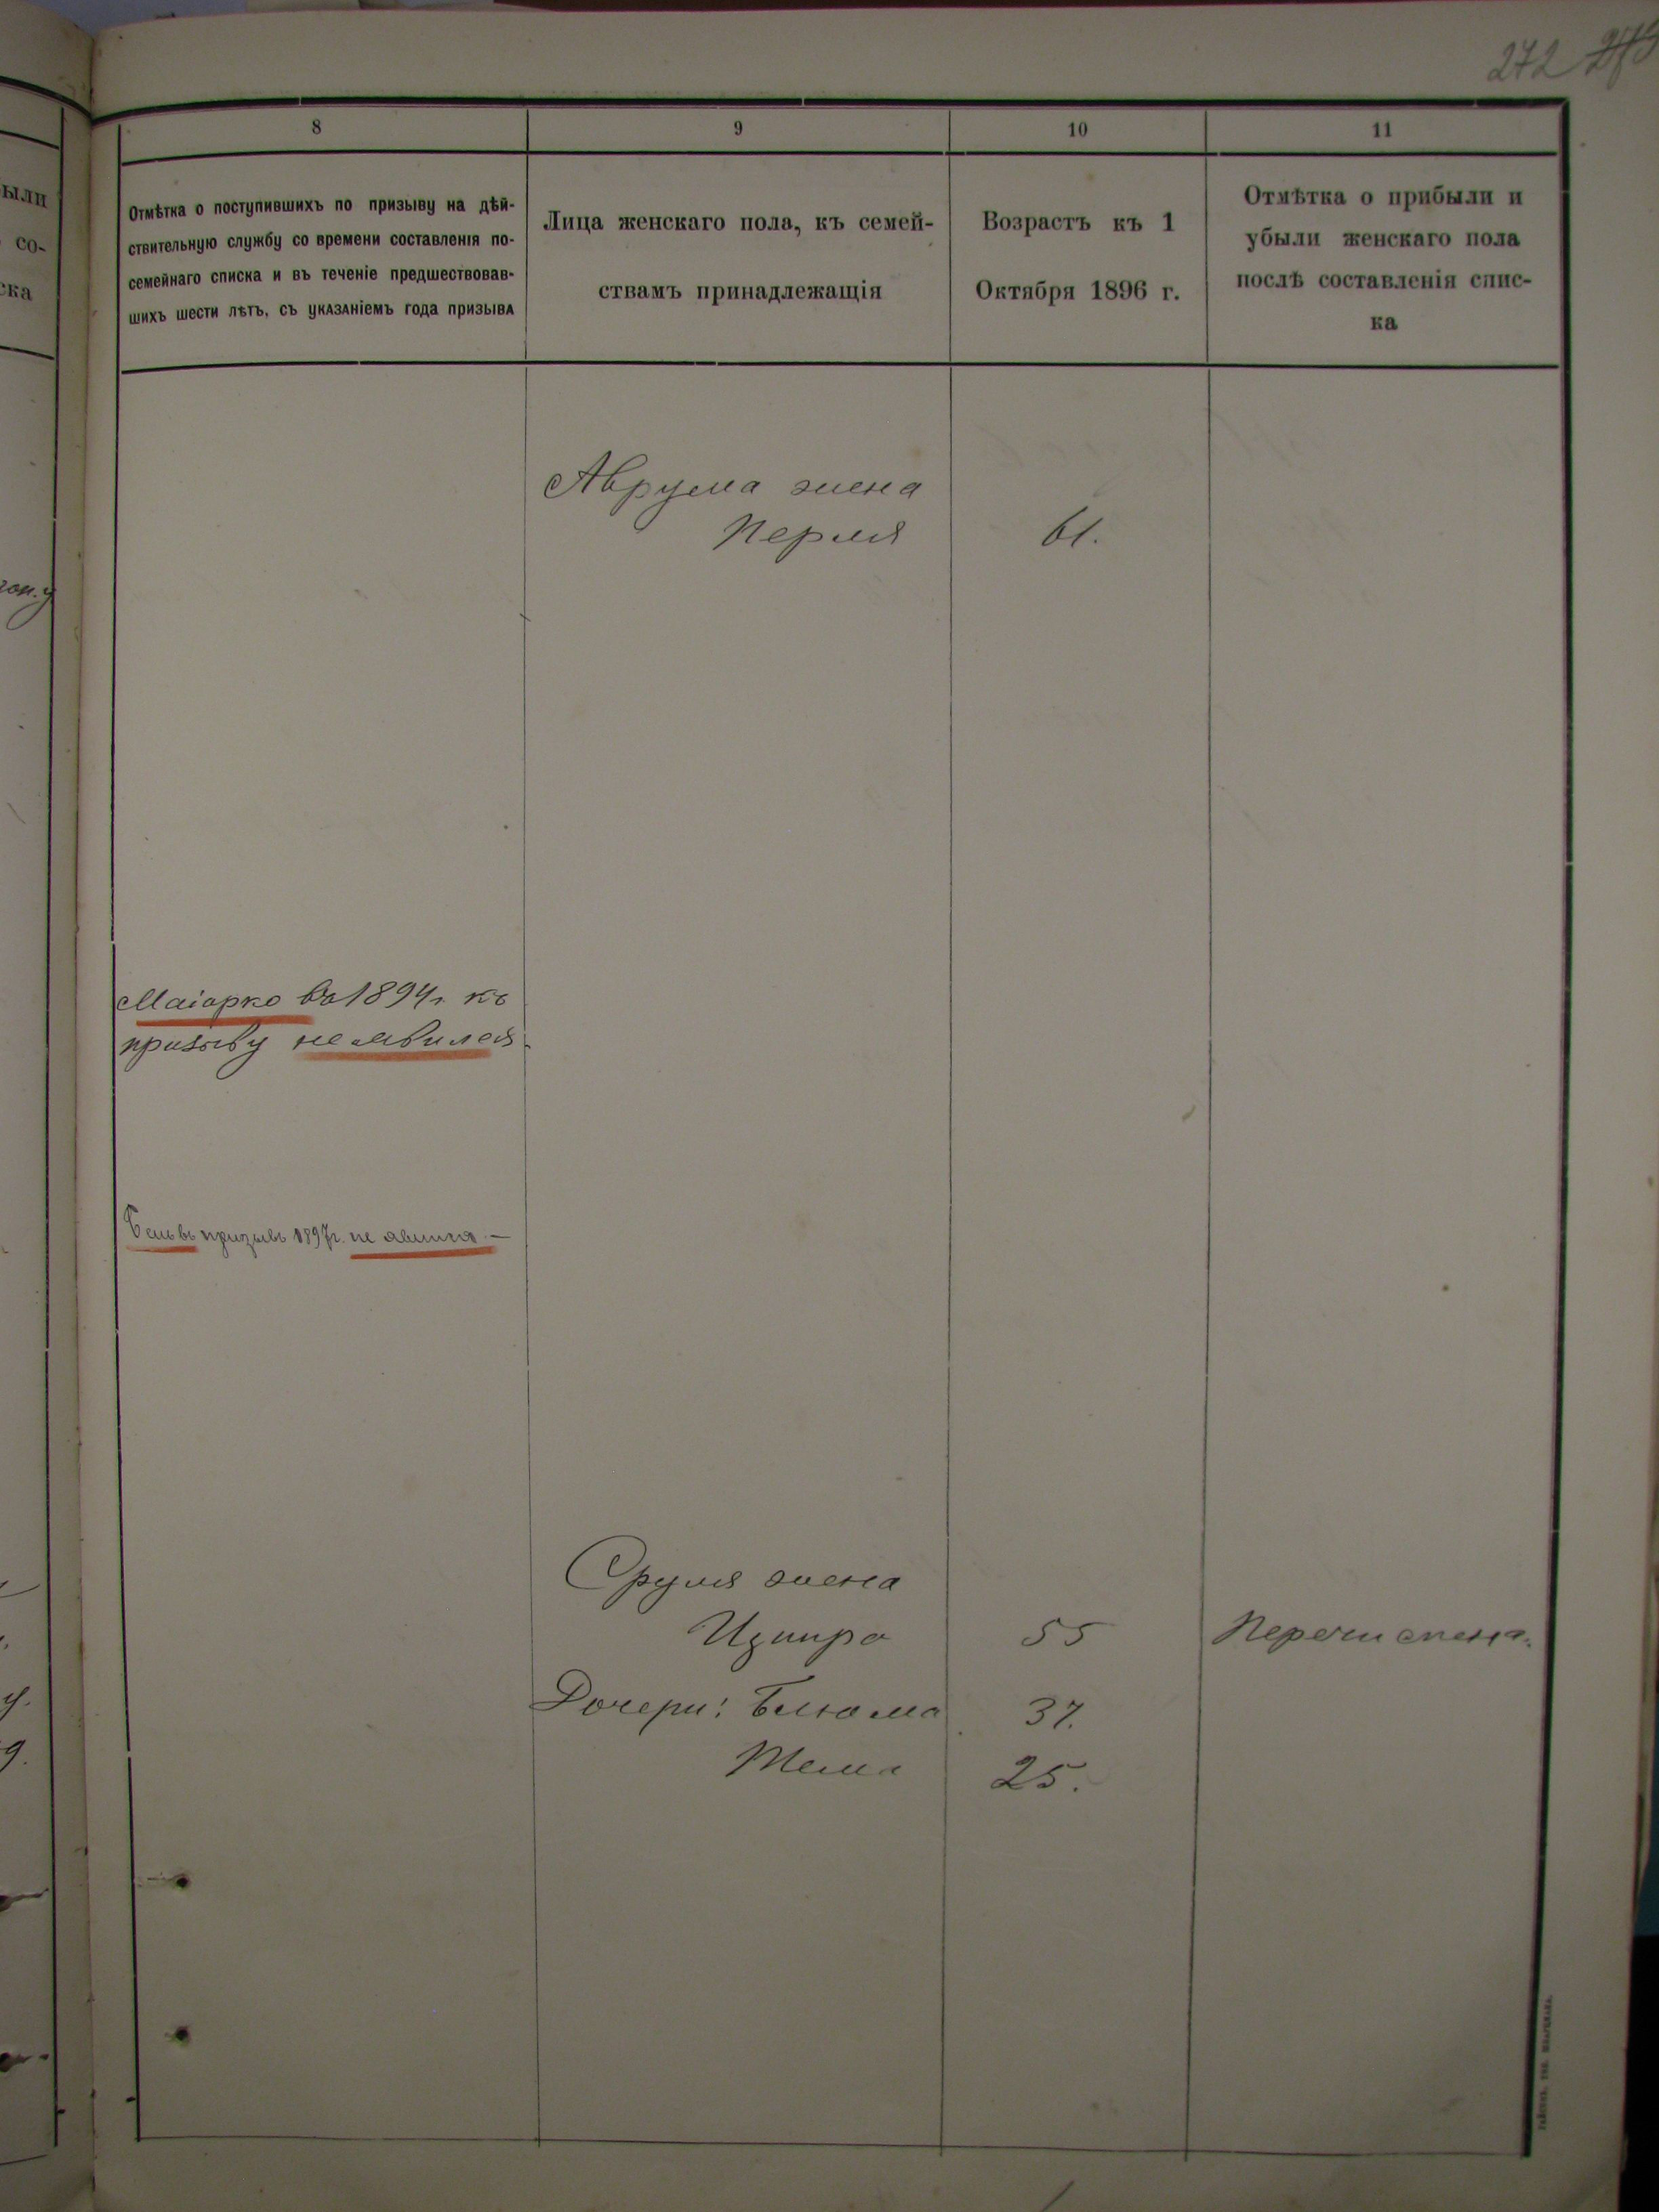 272
8
9
10
11
Отмѣтка о поступившихъ по призыву на дѣй-
ствительную службу со времени составленія по-
семейнаго списка и въ теченіе предшествовав-
шихъ шести лѣтъ, съ указаніемъ года призыва
Лица женскаго пола, къ семей-
ствамъ принадлежащія
Возрастъ къ 1
Октября 1896 г.
Отмѣтка о прибыли и
убыли женскаго пола
послѣ составленія спис-
ка
ыли
со-
ска
Аврума жена
Перля
61.
Маіорко въ 1894 г. къ
призыву не явился
въ призывъ 1897 г. не явился —
Сруля жена
Ципира
55
Перечислена.
Дочери: Блюма
37.
Тема
25.